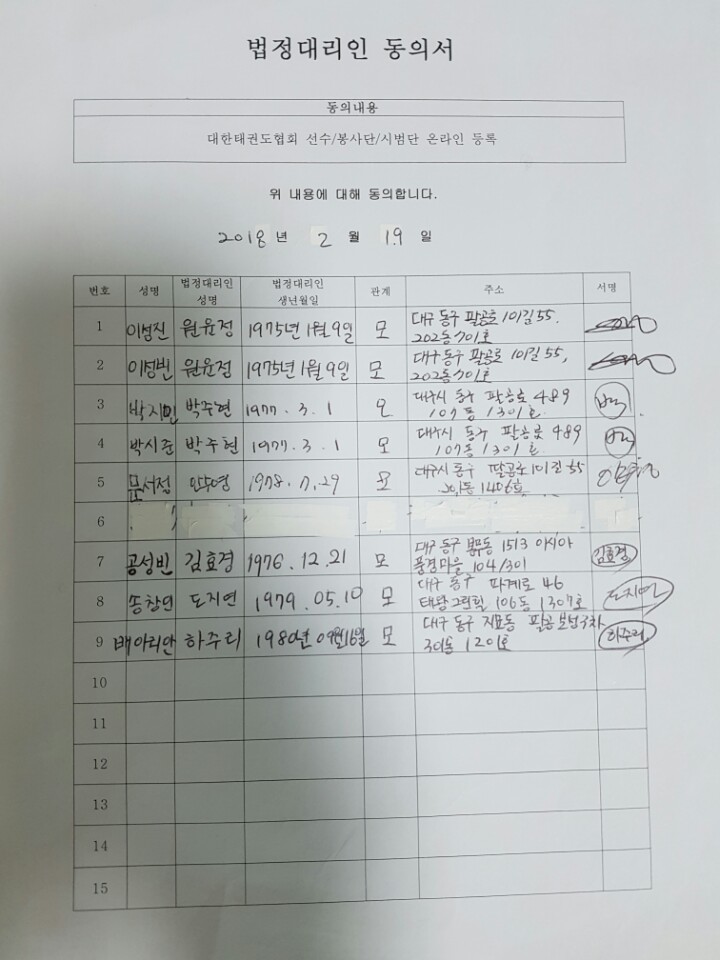 법정대리인 동의서
동의내용
대한태권도협회 선수/봉사단/시범단 온라인 등록
위 내용에 대해 동의합니다.
2018 년 2 월 19 일
번호 성명 법정대리인 성명 법정대리인 생년월일 관계 주소 서명
1 이성진 원윤정 1975년 1월 9일 모 대구 동구 팔공로 101길 55.
202동 701호
2 이성빈 원윤정 1975년 1월 9일 모 대구 동구 팔공로 101길 55,
202동 701호
3 박지민 박주현 1977. 3. 1 모 대구시 동구 팔공로 489
107동 1301호
4 박시준 박주현 1977. 3. 1 모 대구시 동구 팔공로 489
107동 1301호
5 문서정 1978. 7. 29 모 대구시 동구 팔공로 101길 55
1406호
6
7 공성빈 김효경 1976. 12. 21 모 대구 동구 봉무동 1513 아시아
풍경마을 104/301 김효경
8 송창민 도지연 1979. 05. 10 모 대구 동구 파계로 46
106동 1307호 도지연
9 배아리안 하주리 1980년 09월 16일 모 대구 동구 지묘동 팔공보성3차
301동 1201호 하주리
10
11
12
13
14
15